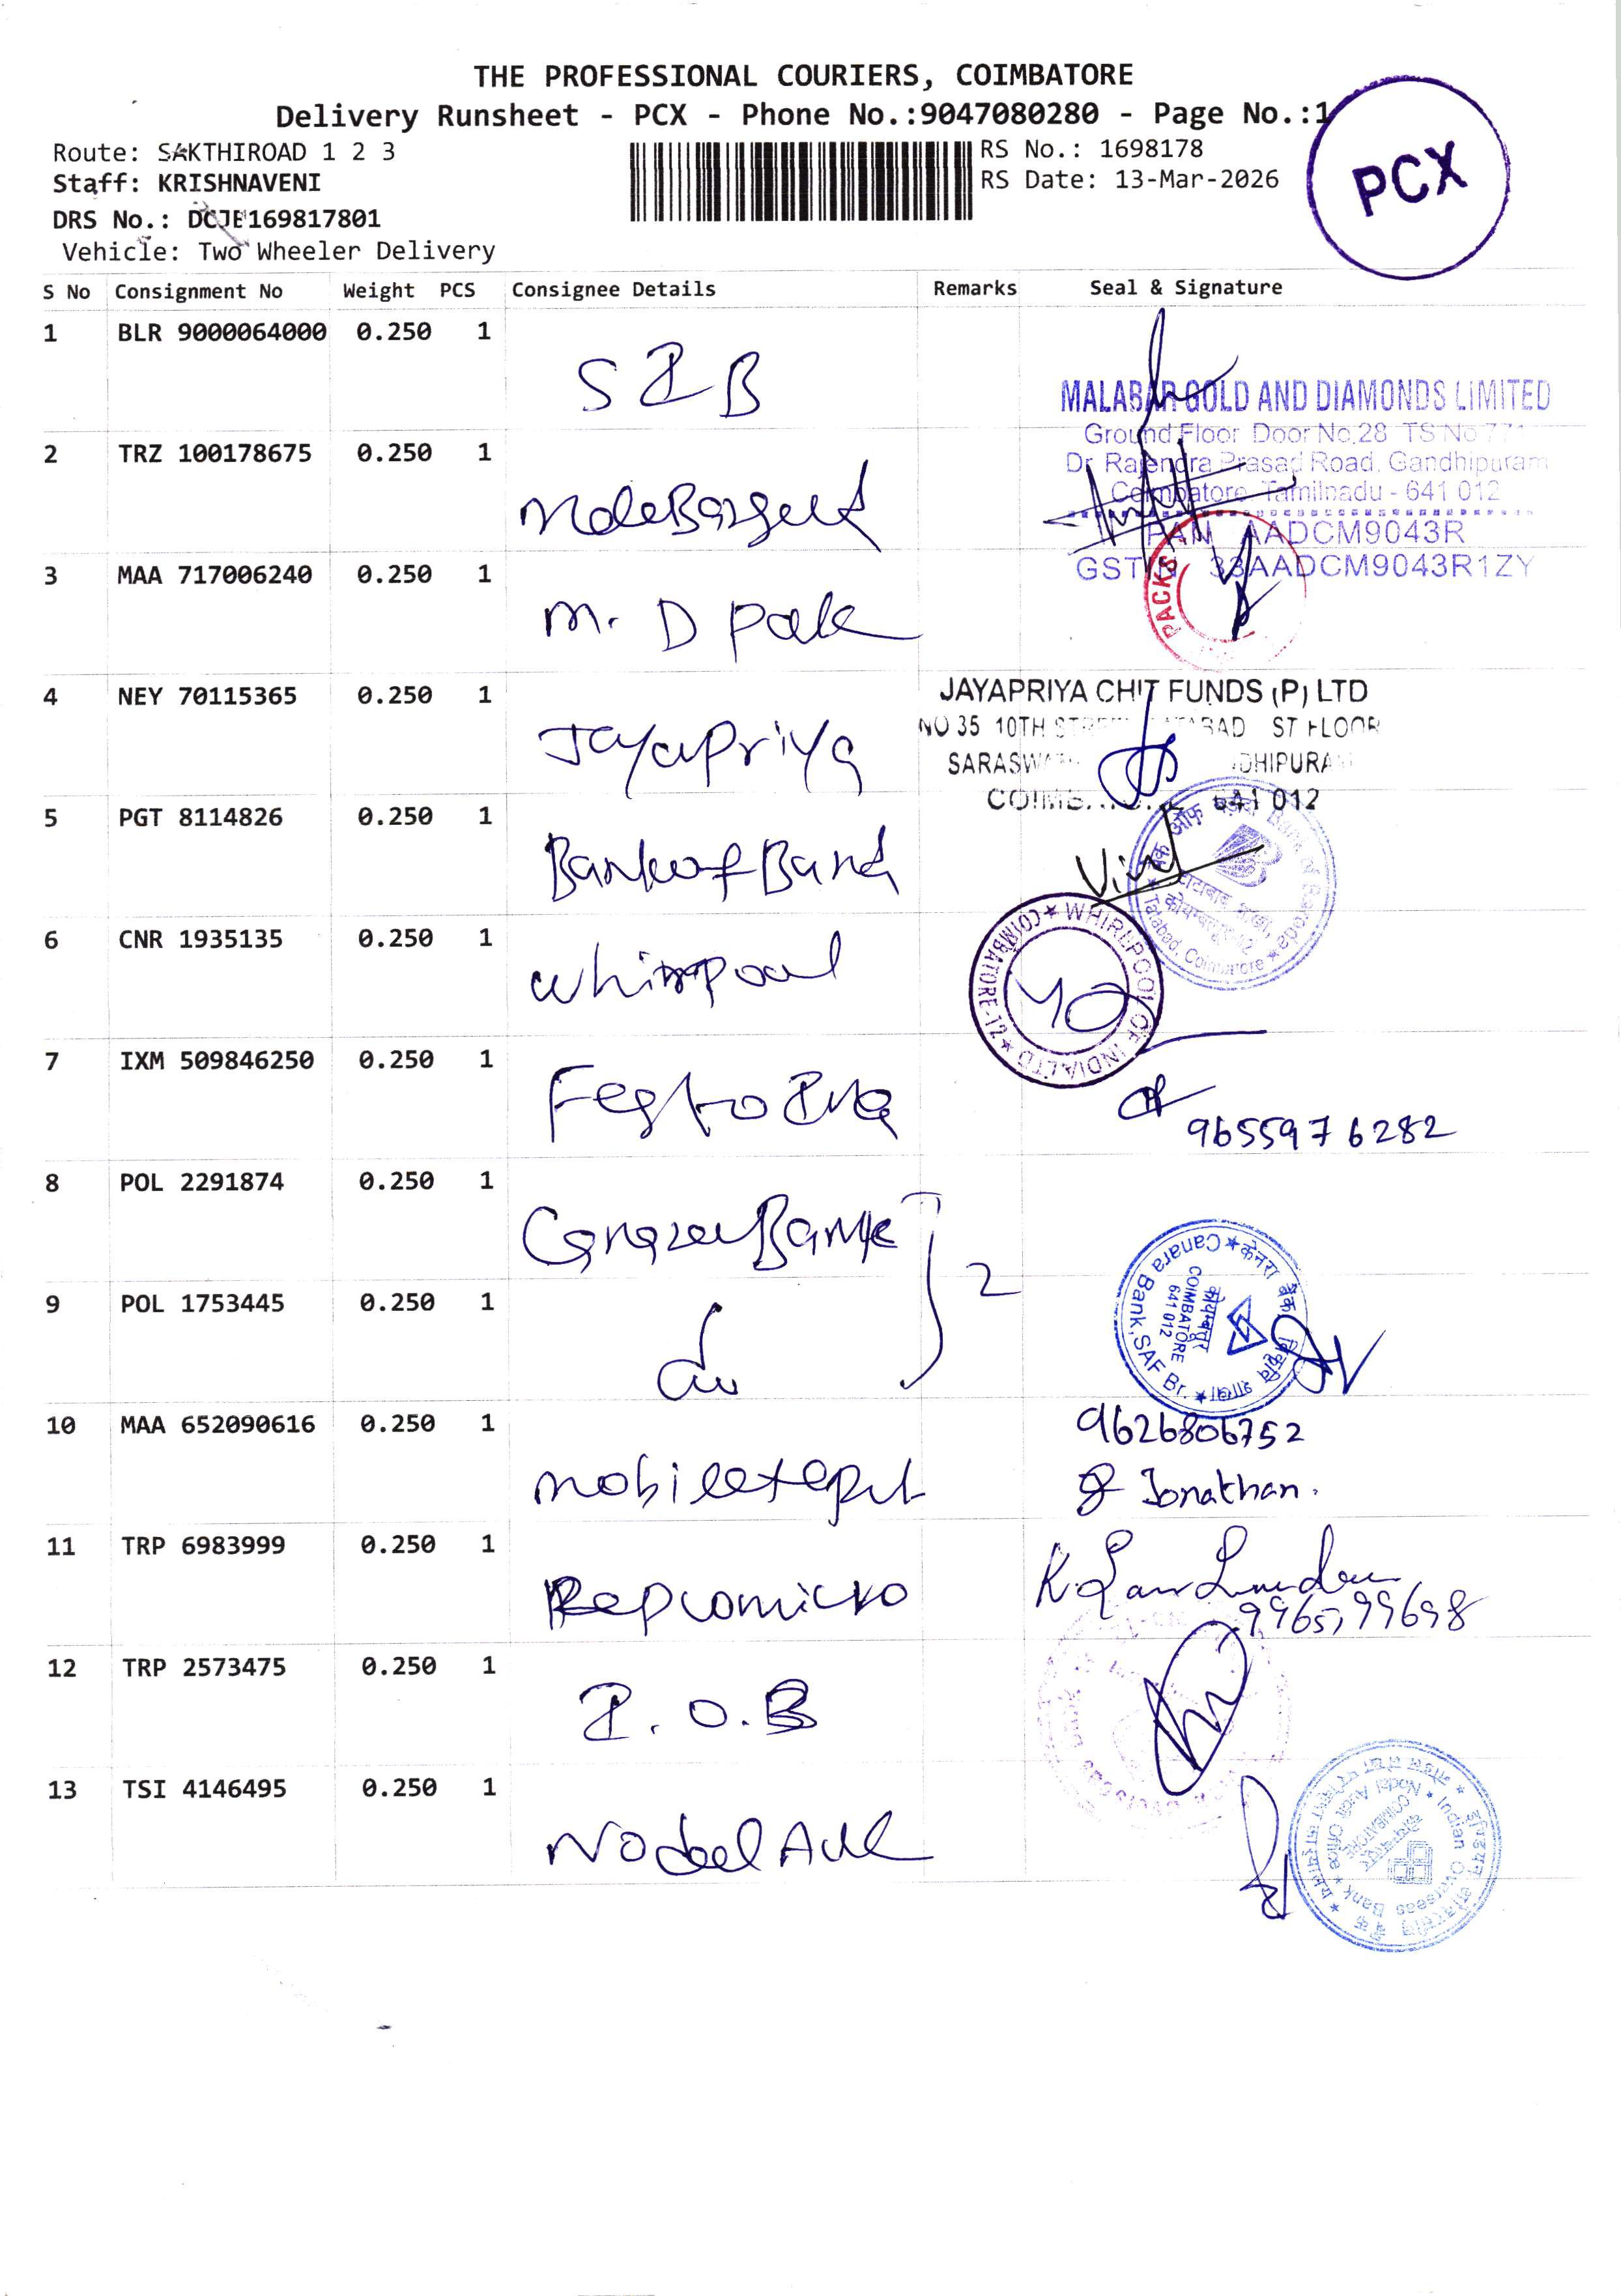 THE PROFESSIONAL COURIERS, COIMBATORE
Delivery Runsheet - PCX - Phone No.:9047080280 - Page No.:1
PCX
Route: SAKTHIROAD 1 2 3
RS No.: 1698178
Staff: KRISHNAVENI
RS Date: 13-Mar-2026
DRS No.: DCJE169817801
Vehicle: Two Wheeler Delivery
S No Consignment No Weight PCS Consignee Details Remarks Seal & Signature
1 BLR 9000064000 0.250 1 SIB
MALABAR GOLD AND DIAMONDS LIMITED
Ground Floor Door No.28 TS No
Dr. Rajendra Prasad Road, Gandhipuram
Coimbatore Tamilnadu - 641 012
PAN AADCM9043R
GSTIN 33AADCM9043R1ZY
2 TRZ 100178675 0.250 1
3 MAA 717006240 0.250 1 M. D
PACKS
4 NEY 70115365 0.250 1 Jayapriya
JAYAPRIYA CHIT FUNDS (P) LTD
NO 35 10TH ST FLOOR
641 012
5 PGT 8114826 0.250 1 Bank of
बैंक ऑफ़ बड़ौदा Bank of Baroda
Tatabad, Coimbatore
6 CNR 1935135 0.250 1
WHIRLPOOL OF INDIA LTD
COIMBATORE-12
7 IXM 509846250 0.250 1
9655976282
8 POL 2291874 0.250 1 2
Canara Bank, SAF Br.
COIMBATORE
641 012
9 POL 1753445 0.250 1
10 MAA 652090616 0.250 1
9626806752
Jonathan.
11 TRP 6983999 0.250 1 Repcomicro
12 TRP 2573475 0.250 1 I.O.B
13 TSI 4146495 0.250 1
Indian Overseas Bank
Nodal Audit Office
COIMBATORE